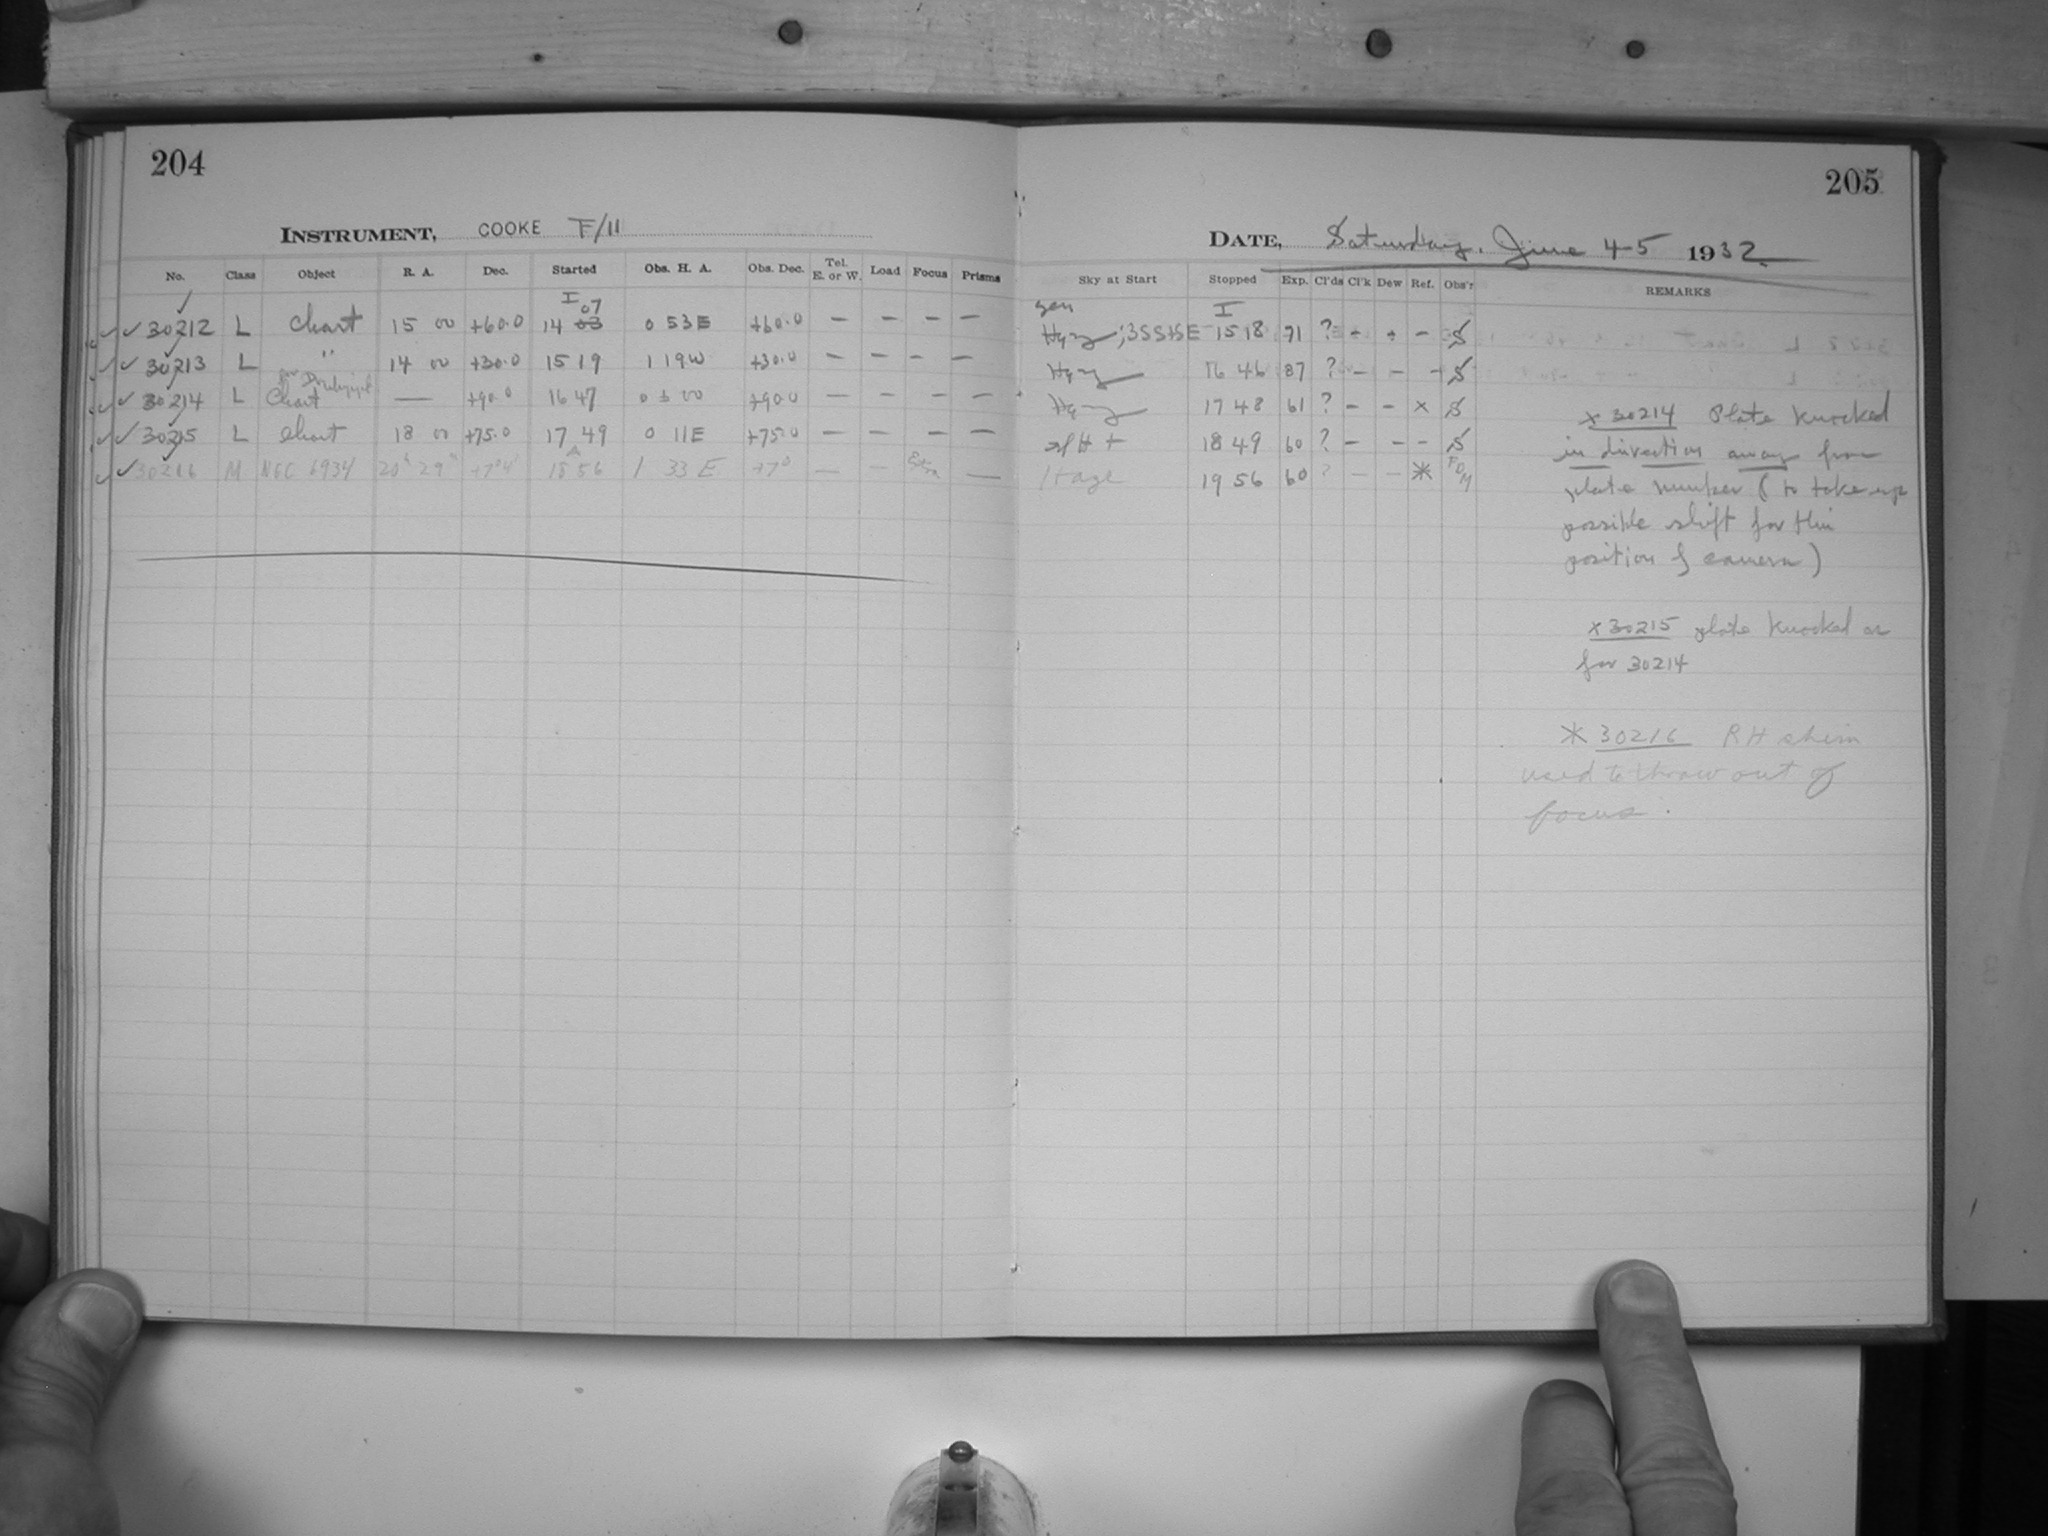 204
205
INSTRUMENT, COOKE F/11
DATE, Saturday, June 4-5 1932
No. Class Object R. A. Dec. Started Obs. H. A. Obs. Dec. Tel. E. or W. Load Focus Prisms
Sky at Start Stopped Exp. Cl'ds Cl'k Dew Ref. Obs'r REMARKS
I I
07
✓ ✓ 30212 L Chart 15 00 +60.0 14 03 0 53E +60.0 — — — — Hazy; 1518 71 ? - + - S
✓ ✓ 30213 L " 14 00 +30.0 1519 1 19W +30.0 — — — — Hazy 16 46 87 ? - - - S
for
✓ ✓ 30214 L Chart — +90.0 1647 +90.0 — — — — Hazy 1748 61 ? - - x S
✓ ✓ 30215 L Chart 18 00 +75.0 17 49 0 11E +75.0 — — — — 1849 60 ? - - - S
✓ ✓ 30216 M NGC 6934 20h 29m +7°4' 18 56 1 33 E +7° — — Extra — Haze 19 56 60 ? - - * FDM
x 30214 Plate knocked
in direction away from
plate number (to take up
possible shift for this
position of camera)
x 30215 plate knocked as
for 30214
* 30216 RH shim
used to throw out of
focus.